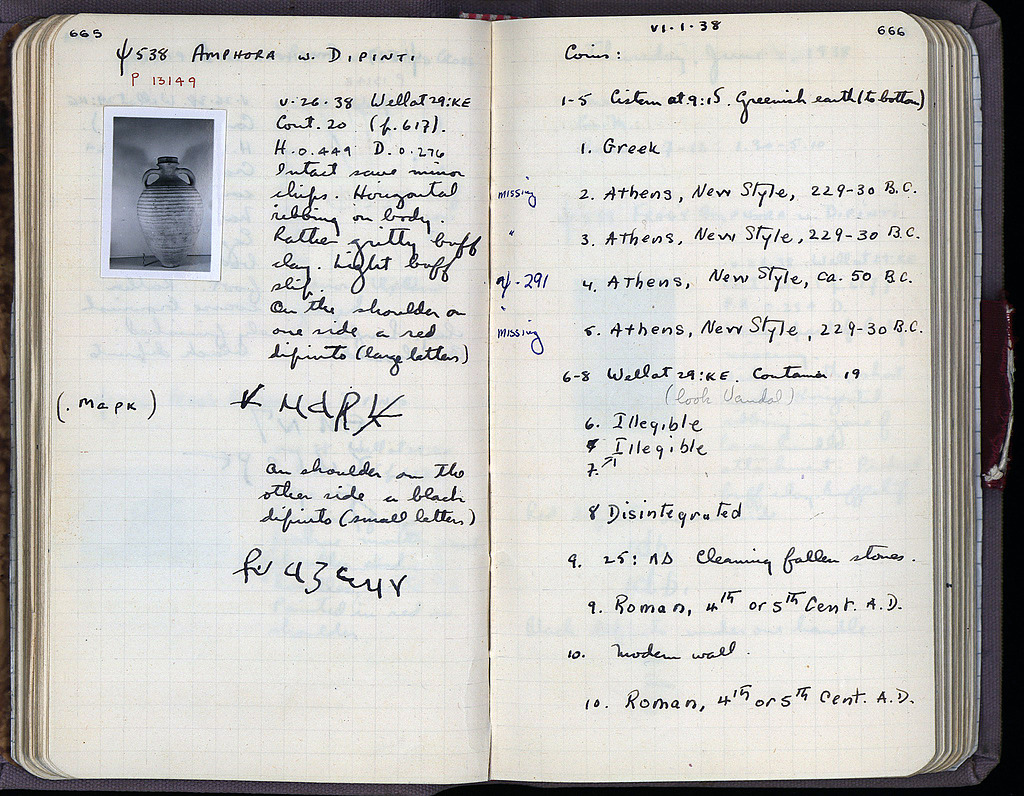 665
ψ538 AMPHORA w. DIPINTI
P 13149
V·26·38 Well at 29:KE
Cont. 20 (p. 617).
H·0.449 D. 0.276
Intact save minor
chips. Horizontal
ribbing on body.
Rather gritty buff
clay. Light buff
slip.
On the shoulder on
one side a red
dipinto (large letters)
(. Mapk)
on shoulder on the
other side a black
dipinto (small letters)
VI·1·38
666
Coins:
1-5 Cistern at 9:15. Greenish earth (to bottom)
1. Greek
missing 2. Athens, New Style, 229-30 B.C.
" 3. Athens, New Style, 229-30 B.C.
ψ-291 4. Athens, New Style, ca. 50 B.C.
missing 5. Athens, New Style, 229-30 B.C.
6-8 Well at 29:KE. Container 19
(look Vandal)
6. Illegible
7. Illegible
8 Disintegrated
9. 25: ΛΔ Cleaning fallen stones.
9. Roman, 4th or 5th Cent. A.D.
10. Modern wall.
10. Roman, 4th or 5th Cent. A.D.